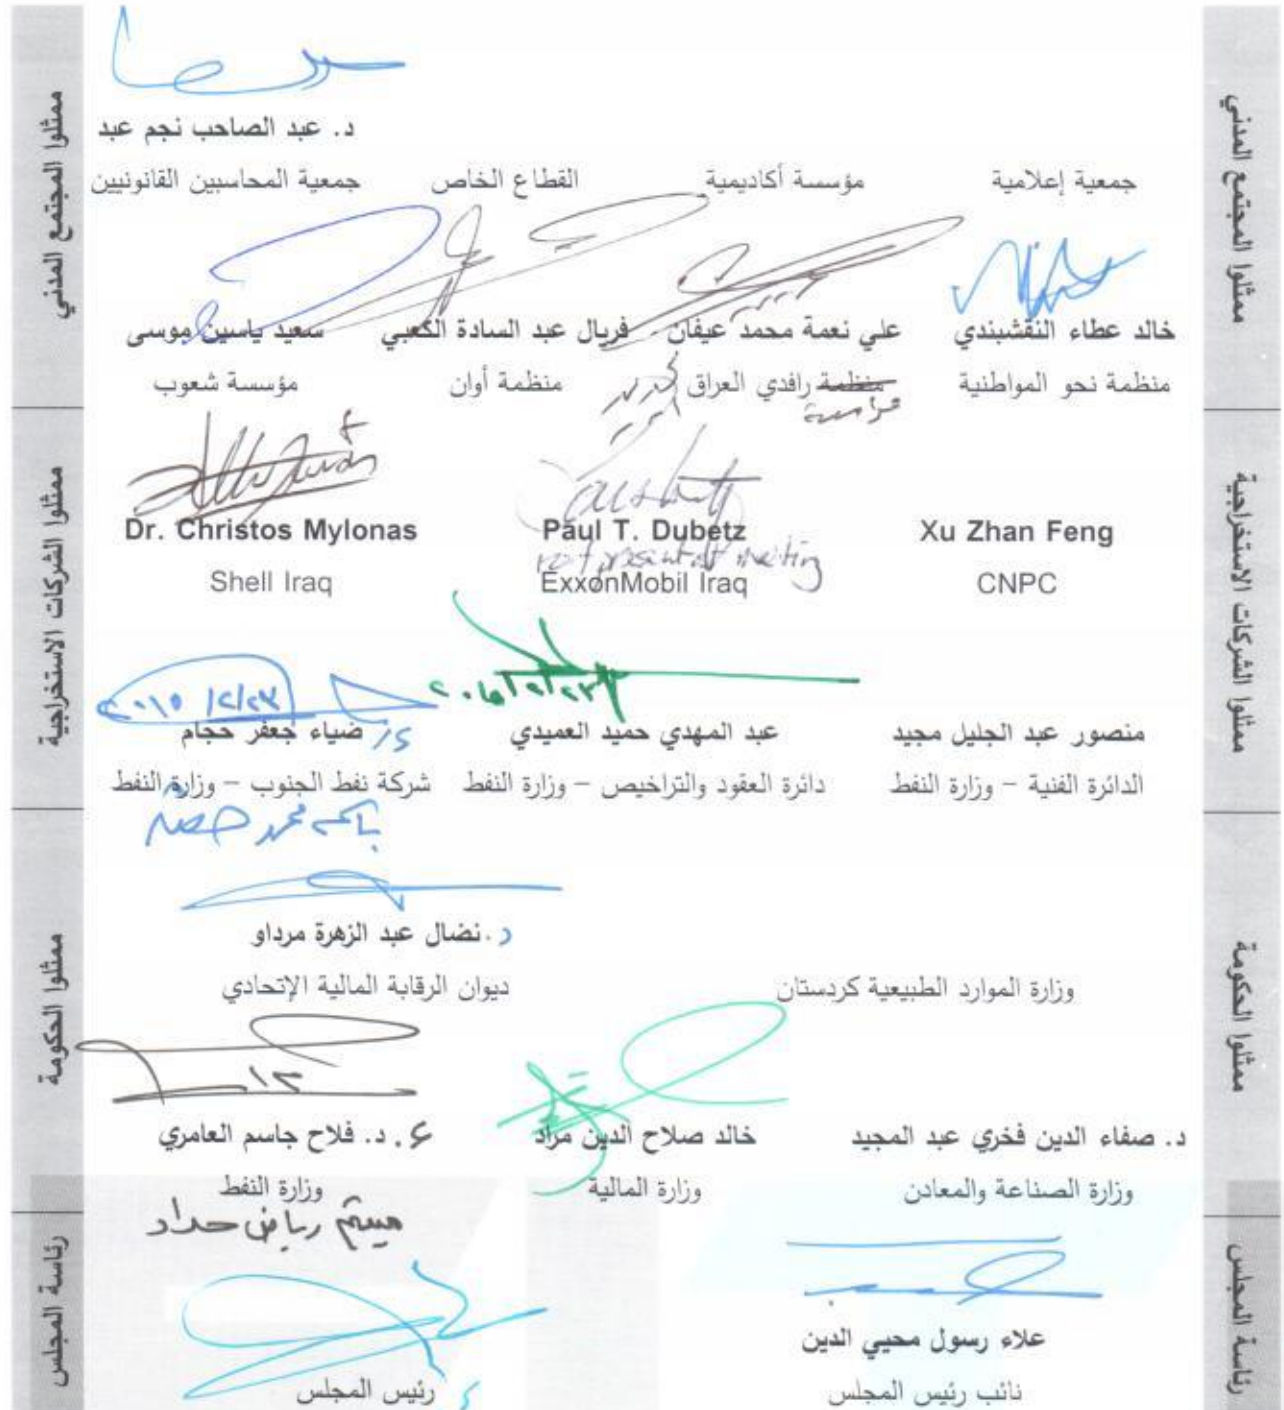 ممثلوا المجتمع المدني
د. عبد الصاحب نجم عبد
جمعية إعلامية مؤسسة أكاديمية القطاع الخاص جمعية المحاسبين القانونيين
خالد عطاء النقشبندي علي نعمة محمد عيفان فريال عبد السادة الكعبي سعيد ياسين موسى
منظمة نحو المواطنية منظمة رافدي العراق منظمة أوان مؤسسة شعوب
ممثلوا المجتمع المدني
ممثلوا الشركات الاستخراجية
Dr. Christos Mylonas Paul T. Dubetz Xu Zhan Feng
not present at meeting
Shell Iraq ExxonMobil Iraq CNPC
٢٠١٥/٢/٢٣
منصور عبد الجليل مجيد عبد المهدي حميد العميدي ضياء جعفر حجام
الدائرة الفنية – وزارة النفط دائرة العقود والتراخيص – وزارة النفط شركة نفط الجنوب – وزارة النفط
ممثلوا الشركات الاستخراجية
ممثلوا الحكومة
د. نضال عبد الزهرة مرداو
وزارة الموارد الطبيعية كردستان ديوان الرقابة المالية الإتحادي
د. صفاء الدين فخري عبد المجيد خالد صلاح الدين مراد ع. د. فلاح جاسم العامري
وزارة الصناعة والمعادن وزارة المالية وزارة النفط
ميثم رياض حداد
ممثلوا الحكومة
رئاسة المجلس
علاء رسول محيي الدين
نائب رئيس المجلس رئيس المجلس
رئاسة المجلس